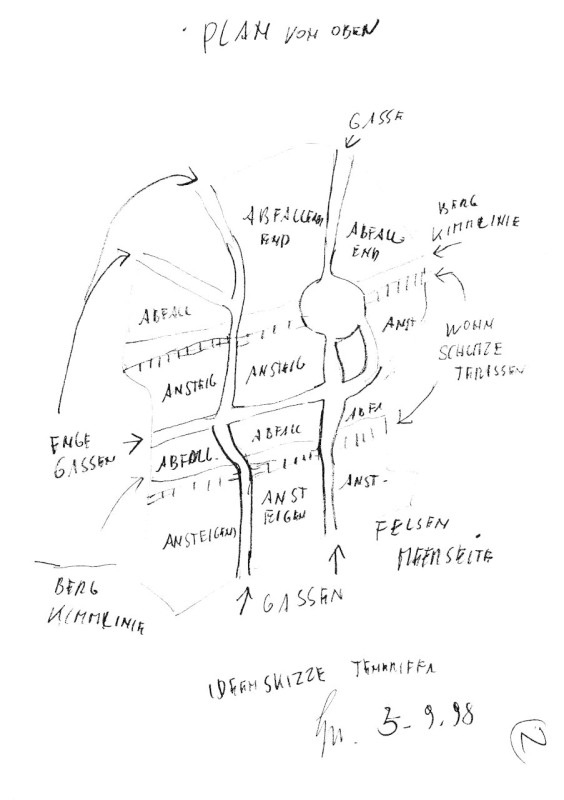 PLAN VON OBEN
GASSE
BERG
KIMMLINIE
ABFALLEND
END
ABFALL-
END
ABFALL
ANST
WOHN
SCHLITZE
TERASSEN
ANSTEIG
ANSTEIG
ABFA
ENGE
GASSEN
ABFALL
ABFALL.
ANST
EIGEN
ANST-
ANSTEIGEND
FELSEN
MEERSEITE
BERG
KIMMLINIE
GASSEN
IDEENSKIZZE TENERIFFA
3-9.98
2